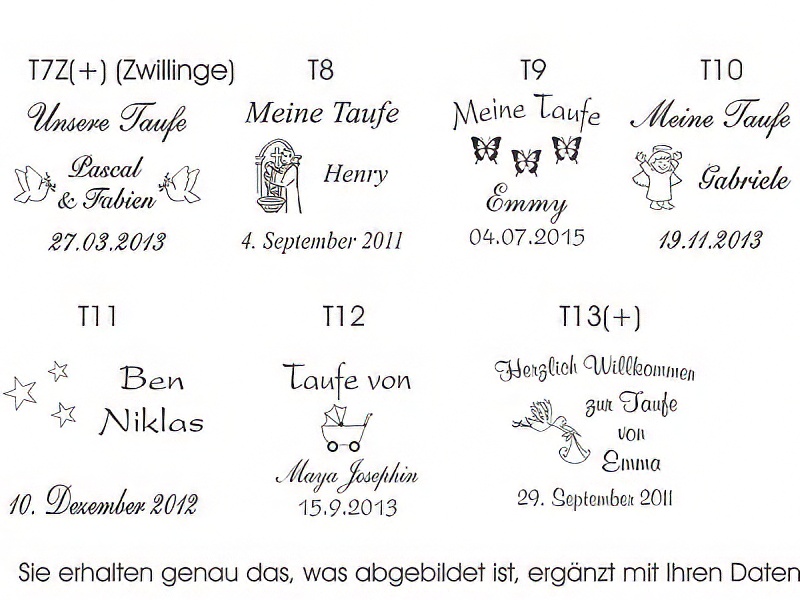 T7Z(+) (Zwillinge)
Unsere Taufe
Pascal
& Fabien
27.03.2013
T8
Meine Taufe
Henry
4. September 2011
T9
Meine Taufe
Emmy
04.07.2015
T10
Meine Taufe
Gabriele
19.11.2013
T11
Ben
Niklas
10. Dezember 2012
T12
Taufe von
Maya Josephin
15.9.2013
T13(+)
Herzlich Willkommen
zur Taufe
von
Emma
29. September 2011
Sie erhalten genau das, was abgebildet ist, ergänzt mit Ihren Daten